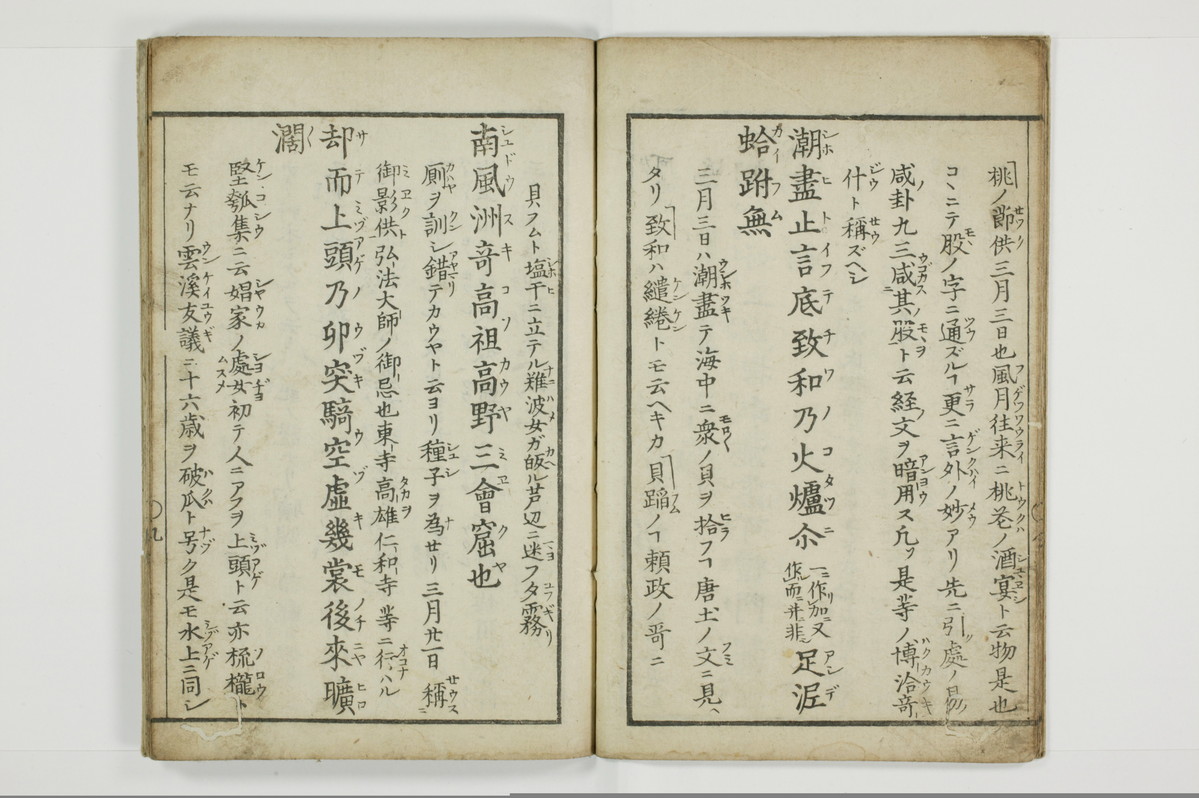 桃ノ節供三月三日也風月往来ニ桃花ノ酒宴ト云物是也
コヽニテ股ノ字ニ通ズルヿ更ニ言外ノ妙アリ先ニ引處ノ易ノ
咸卦九三咸其股ト云経文ヲ暗用ス凡ソ是等ノ博洽奇
什ト稱ズヘシ
潮盡止言底致和乃火爐尒 一ニ作加又作而並非 足泥
蛤跗無
三月三日ハ潮盡テ海中ニ衆ノ貝ヲ拾フヿ唐土ノ文ニ見ヘ
タリ致和ハ繾綣トモ云ヘキカ貝蹈ノヿ頼政ノ哥ニ
貝フムト塩干ニ立テル難波女ガ皈ル芦辺ニ迷フタ霧
南風洲竒高祖高野三會窟也
厠ヲ訓シ錯テカウヤト云ヨリ種子ヲ為せリ三月廿一日稱ス
御影供ト弘法大師ノ御忌也東寺高雄仁和寺等ニ行ハル
却而上頭乃卯突騎空虚幾裳後來曠
濶
堅瓠集ニ云娼家ノ處女初テ人ニアフヲ上頭ト云亦梳櫳ト
モ云ナリ雲溪友議ニ十六歳ヲ破瓜ト号ク是モ水上ニ同シ
九